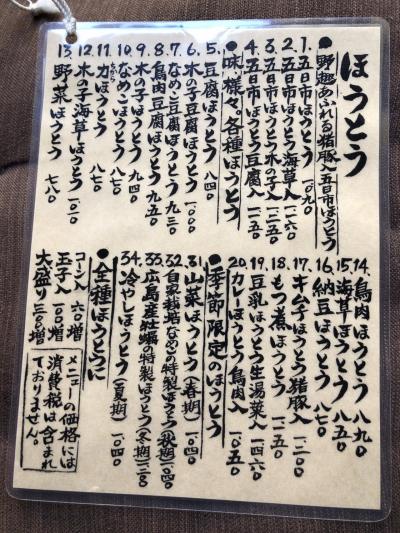 ほうとう
●野趣あふれる猪豚入五日市ほうとう
1. 五日市ほうとう 一〇九〇
2. 五日市ほうとう海草入 一二六〇
3. 五日市ほうとう木の子入 一三五〇
4. 五日市ほうとう豆腐入 一二五〇
●味、様々、各種ほうとう
5. 豆腐ほうとう 八四〇
6. 木の子豆腐ほうとう 一〇〇〇
7. なめこ豆腐ほうとう 九三〇
8. 鳥肉豆腐ほうとう 九五〇
9. 木の子ほうとう 九四〇
10. なめこほうとう 八七〇
11. 力ほうとう 八七〇
12. 木の子海草ほうとう 一〇一〇
13. 野菜ほうとう 七八〇
14. 鳥肉ほうとう 八九〇
15. 海草ほうとう 八五〇
16. 納豆ほうとう 八七〇
17. キムチほうとう猪豚入 一二〇〇
18. もつ煮ほうとう 一二五〇
19. 豆乳ほうとう生湯葉入 一四六〇
20. カレーほうとう鳥肉入 一〇五〇
●季節限定のほうとう
31. 山菜ほうとう（春期） 一〇四〇
32. 自家栽培なめこの特製ほうとう（秋期） 一〇四〇
33. 広島産牡蠣の特製ほうとう（冬期） 一三二〇
34. 冷やしほうとう（夏期） 一〇四〇
●全種ほうとうに
コーン入 六〇増
玉子入 一〇〇増
大盛り 三〇〇増
メニューの価格には
消費税は含まれ
ておりません。